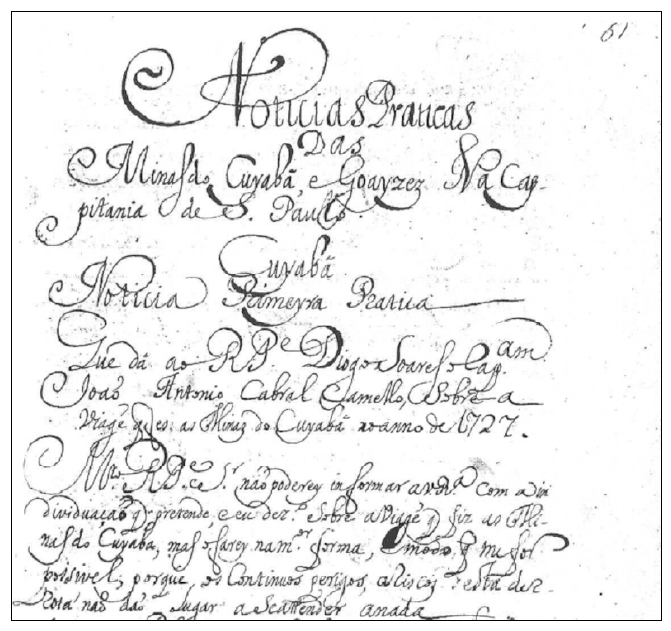 61
Noticias Praticas
Das
Minas do Cuyabâ, e Goayzez Na Cap-
pitania de S. Paulo
Cuyabâ
Noticia Primeyra Pratica
Que dâ ao R. Pe Diogo Soares o Cap.am
João Antonio Cabral Camello, Sobre a
Viagê q̃ fes as Minas do Cuyabâ no anno de 1727.
R. Pe Sr não poderey informar a V. Ra com a in
dividuação q̃ pretende, e eu dez.o Sobre a Viagê q̃ fiz as Mi-
nas do Cuyabâ, mas o farey na mr forma, e modo q̃ me for
possivel, porque, os Continuos perigos, e desta der-
Rota não dão Lugar a Se attender a nada